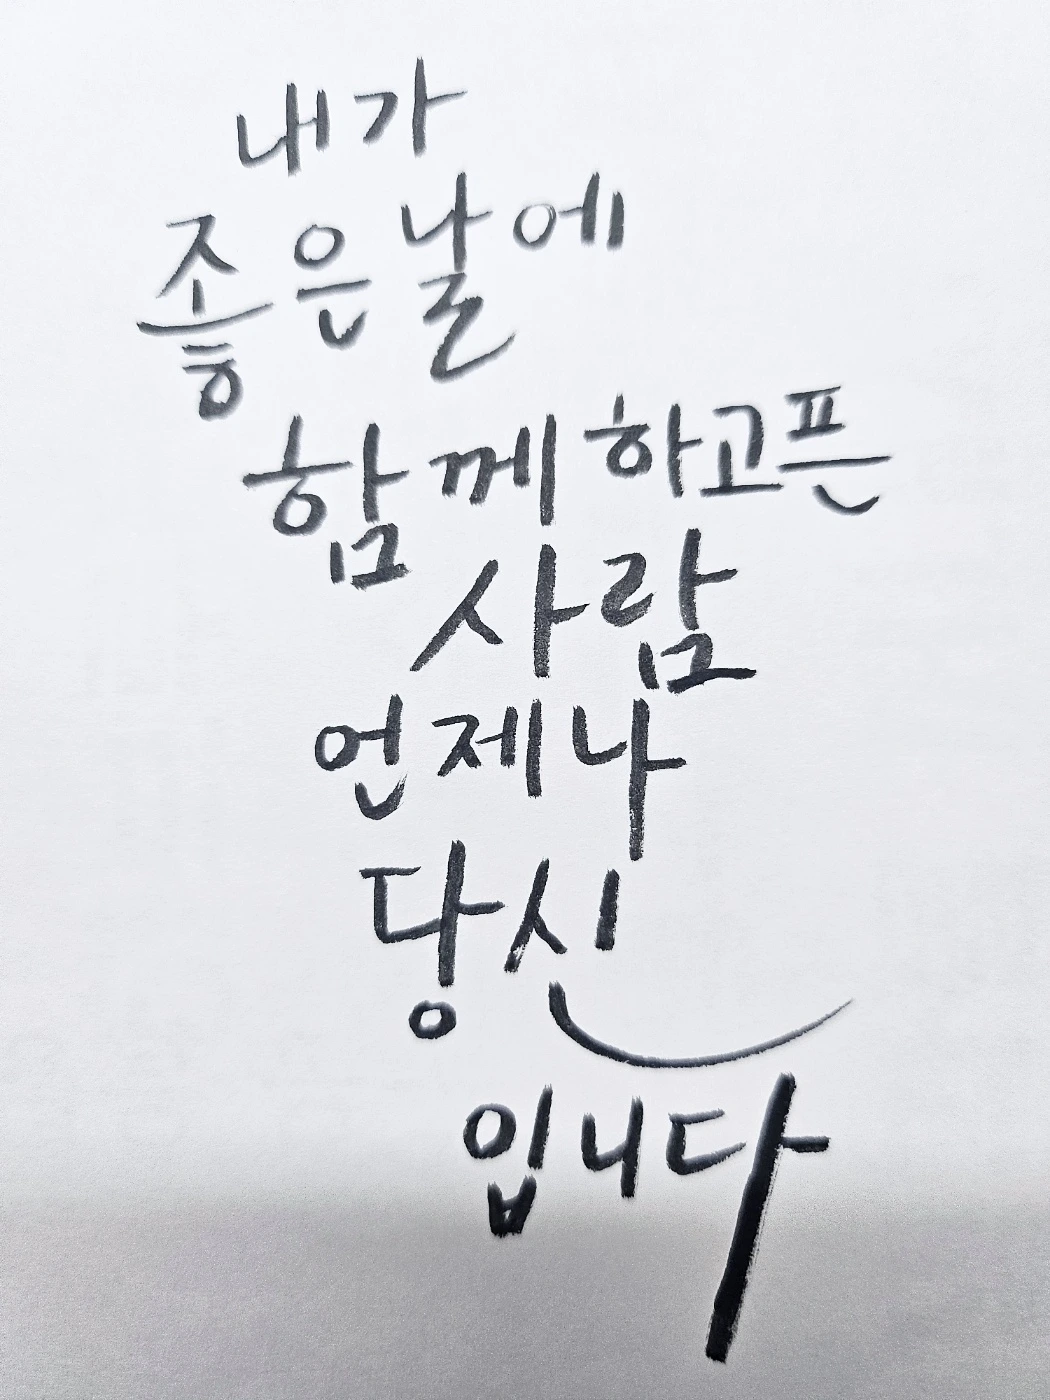 내가
좋은 날에
함께 하고픈
사람
언제나
당신
입니다